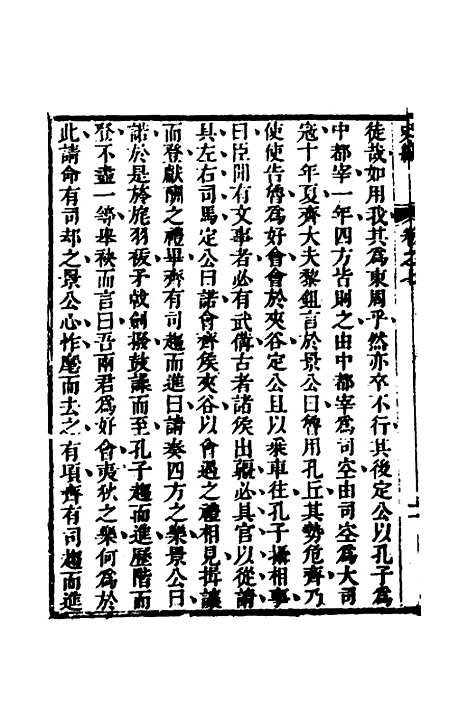 史纂
卷之七
徒哉如用我其爲東周乎然亦卒不行其後定公以孔子爲
中都宰一年四方皆則之由中都宰爲司空由司空爲大司
寇十年夏齊大夫黎鉏言於景公曰魯用孔丘其勢危齊乃
使使告魯爲好會會於夾谷定公且以乘車往孔子攝相事
曰臣聞有文事者必有武備古者諸侯出疆必具官以從請
具左右司馬定公曰諾會齊侯夾谷以會遇之禮相見揖讓
而登獻酬之禮畢齊有司趨而進曰請奏四方之樂景公曰
諾於是旍旄羽袚矛戟劍撥鼓譟而至孔子趨而進歷階而
登不盡一等舉袂而言曰吾兩君爲好會夷狄之樂何爲於
此請命有司却之景公心怍麾而去之有項齊有司趨而進